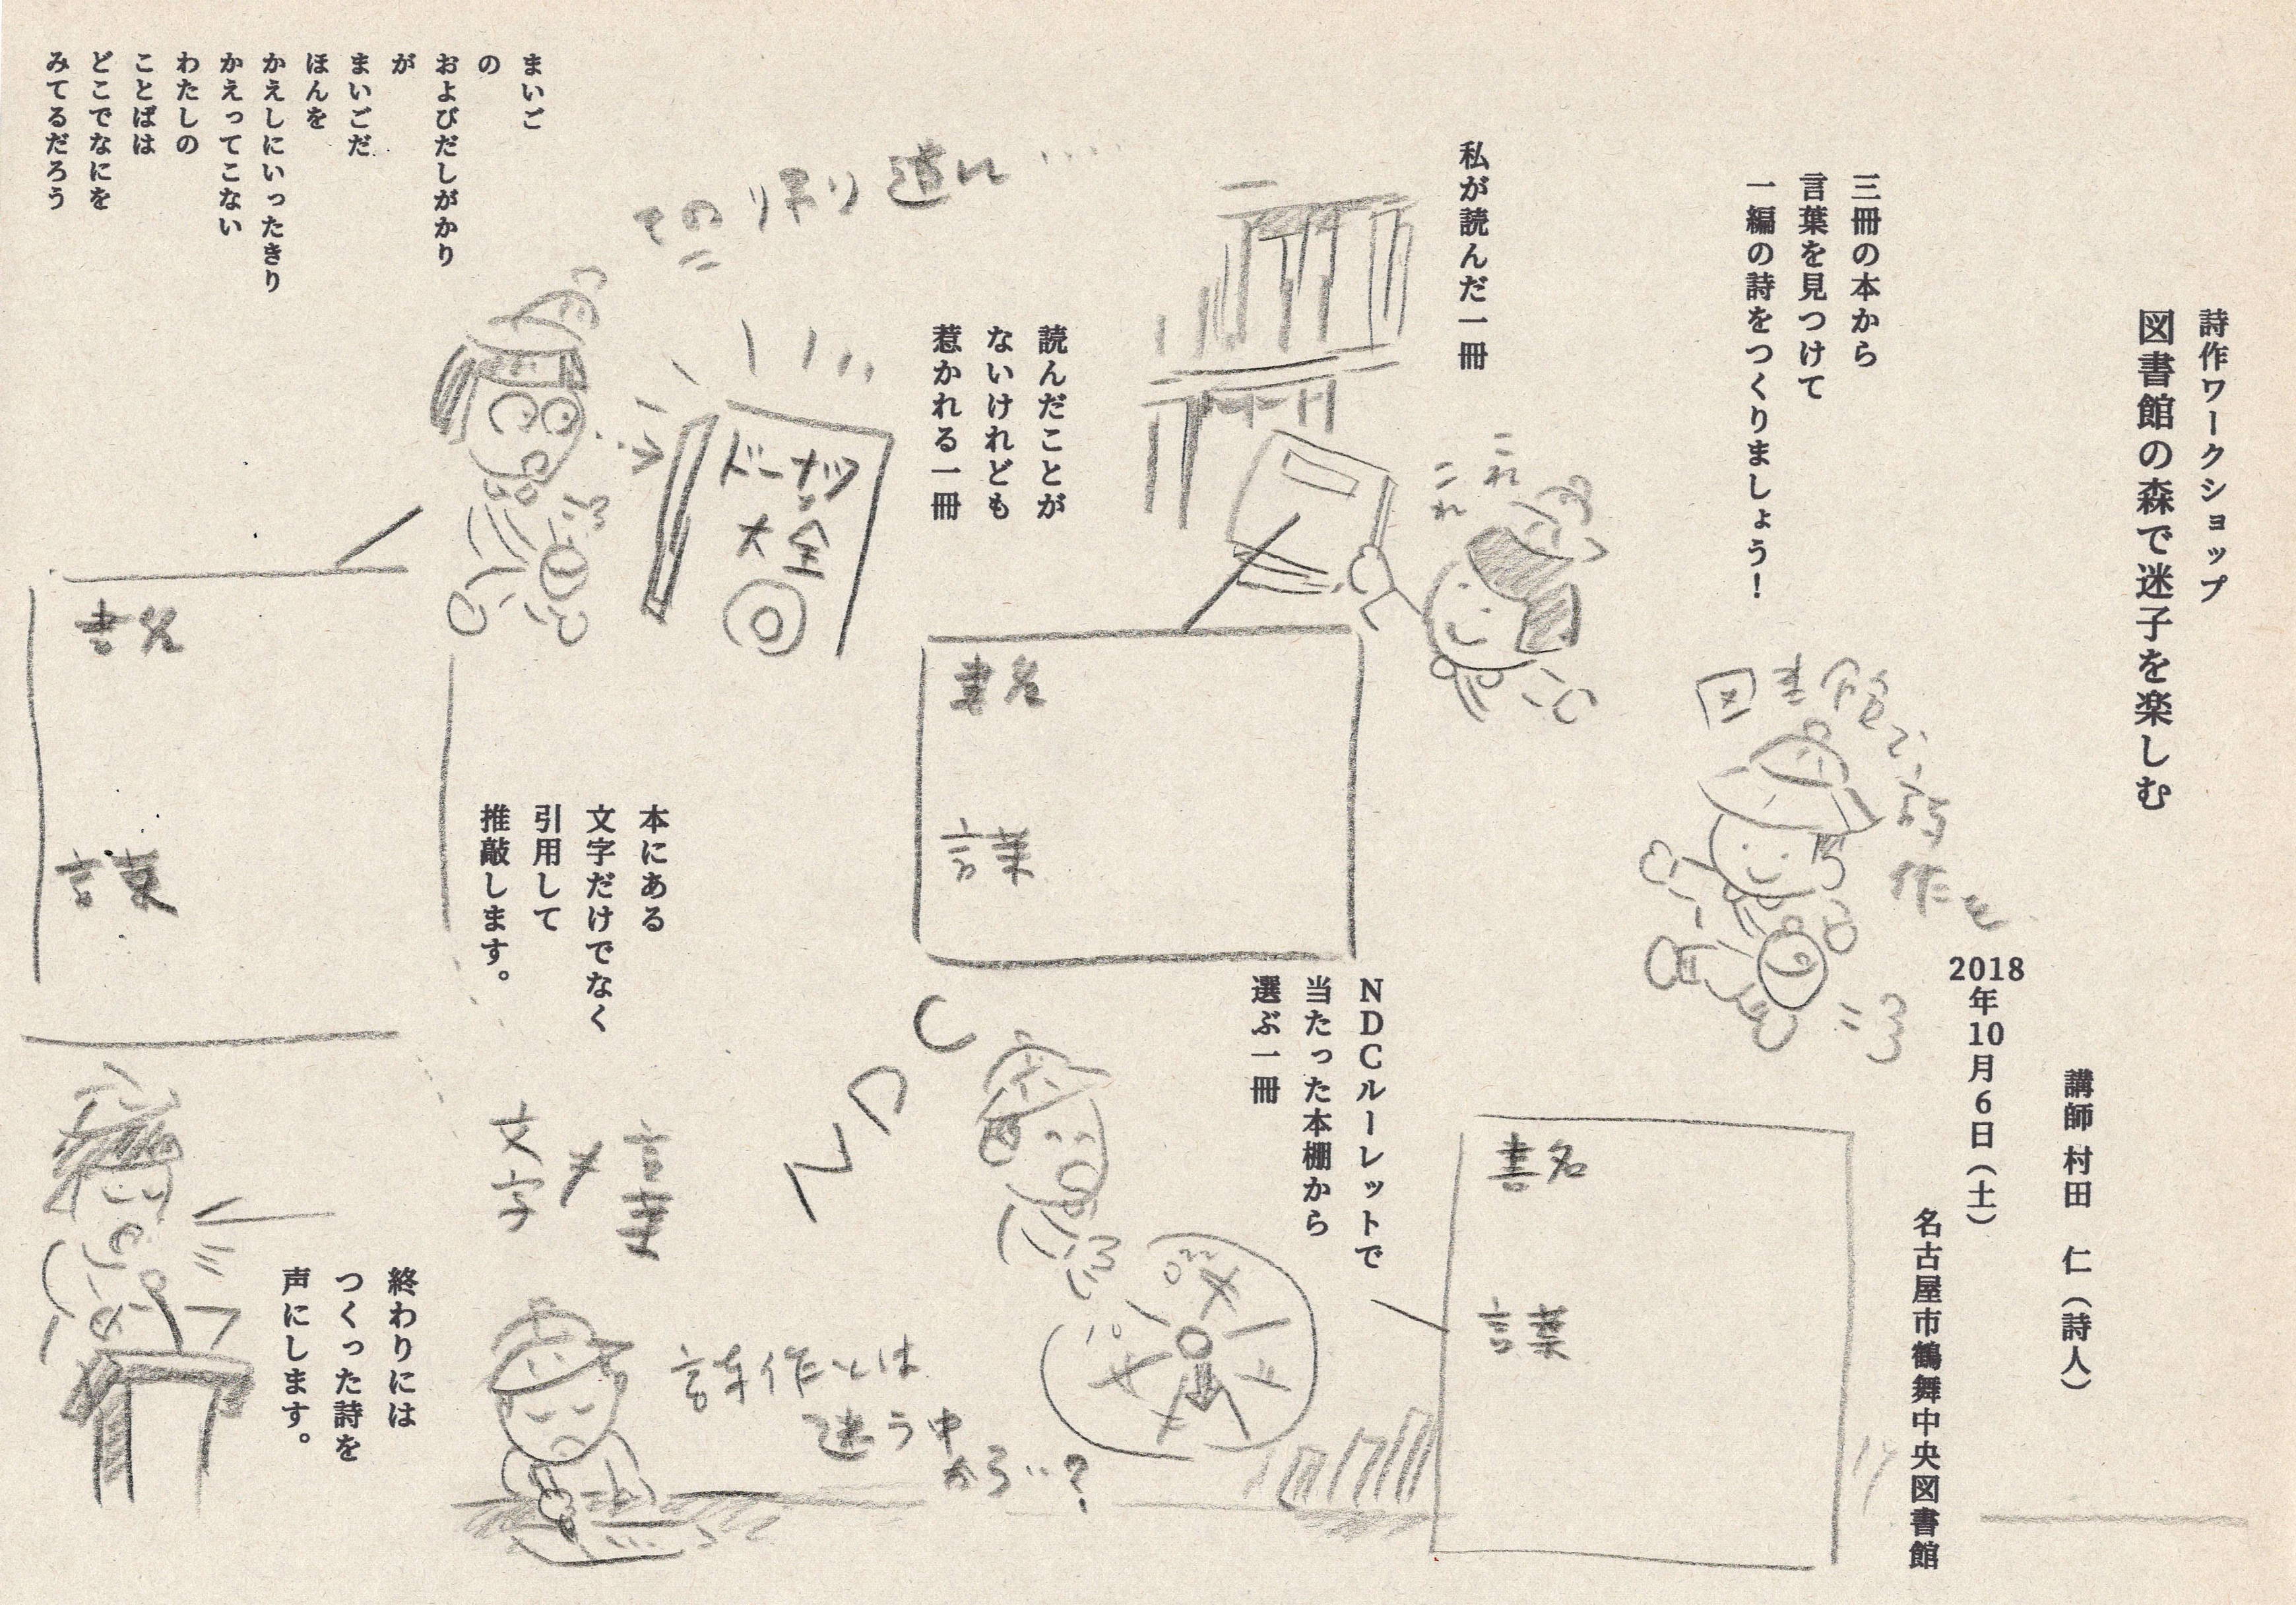 詩作ワークショップ
図書館の森で迷子を楽しむ
講師 村田 仁（詩人）
2018年10月6日（土）
名古屋市鶴舞中央図書館
三冊の本から
言葉を見つけて
一編の詩をつくりましょう！
図書館で
詩作を
私が読んだ一冊
これ
これ
書名
言葉
読んだことが
ないけれども
惹かれる一冊
ドーナツ
大全
書名
言葉
NDCルーレットで
当たった本棚から
選ぶ一冊
NDC
書名
言葉
本にある
文字だけでなく
引用して
推敲します。
言葉
文字
詩作とは
迷う中
から…？
終わりには
つくった詩を
声にします。
その帰り道に…
まいご
の
およびだしがかり
が
まいごだ
ほんを
かえしにいったきり
かえってこない
わたしの
ことばは
どこでなにを
みてるだろう